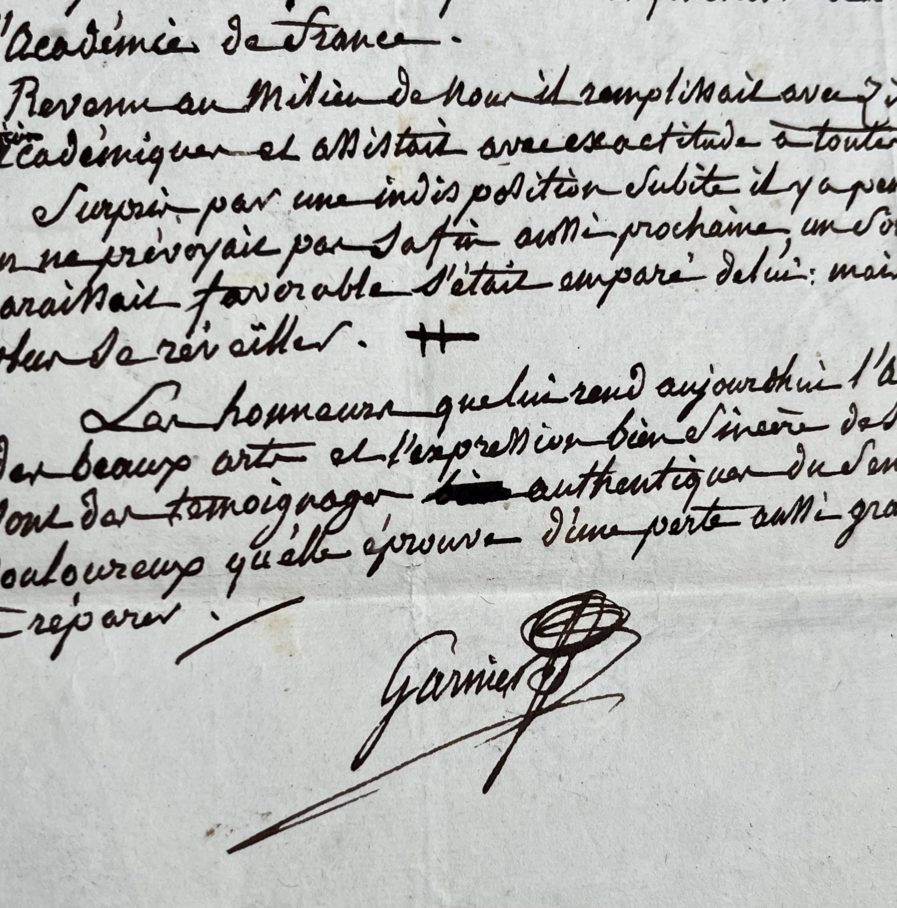 l'Académie de France.
Revenu au Milieu de nous il remplissait avec
académiques et assistait avec exactitude à toutes
Surpris par une indisposition subite il y a peu
on ne prévoyait pas sa fin aussi prochaine, un
paraissait favorable s'était emparé de lui: mais
plus se réveiller. 
Les honneurs que lui rend aujourdhui l'A
des beaux arts et l'expression bien sincère des
sont des témoignages authentiques du Sen
douloureux qu'elle éprouve d'une perte aussi gra
réparer.
Garnier